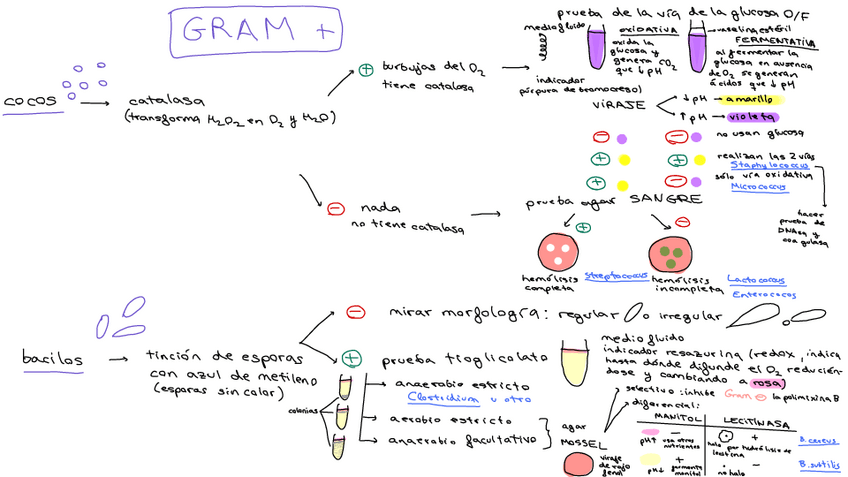 GRAM +
cocos
catalasa
(transforma H₂O₂ en O₂ y H₂O)
+ burbujas del O₂
tiene catalasa
prueba de la vía de la glucosa O/F
medio fluido
indicador
púrpura de bromocresol
OXIDATIVA
oxida la
glucosa y
genera CO₂
que ↓ pH
vaselina estéril
FERMENTATIVA
al fermentar la
glucosa en ausencia
de O₂ se generan
ácidos que ↓ pH
VIRAJE
↓ pH → amarillo
↑ pH → violeta
− − no usan glucosa
+ + realizan las 2 vías
Staphylococcus
+ − sólo vía oxidativa
Micrococcus
hacer
prueba de
DNAsa y
coagulasa
− nada
no tiene catalasa
prueba agar SANGRE
+
−
hemólisis
completa
Streptococcus
hemólisis
incompleta
Lactococcus
Enterococos
bacilos
tinción de esporas
con azul de metileno
(esporas sin color)
− mirar morfología: regular o irregular
+ prueba tioglicolato
medio fluido
indicador resazurina (redox, indica
hasta dónde difunde el O₂ reducién-
dose y cambiando a rosa)
colonias
anaerobio estricto
Clostridium u otro
aerobio estricto
anaerobio facultativo
agar
MOSSEL
viraje
de rojo
fenol
selectivo: inhibe Gram − la polimixina B
diferencial:
MANITOL
LECITINASA
pH↑
−
usa otros
nutrientes
+
halo por hidrólisis de
lecitina
B. cereus
pH↓
+
fermenta
manitol
−
no halo
B. subtilis